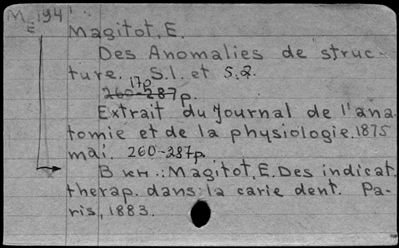 M E 194
Magitot, E.
Des Anomalies de struc-
ture. S.l. et s.a.
170
260-287 p.
Extrait du Journal de l'ana-
tomie et de la physiologie. 1875
mai. 260-287 p.
В кн.: Magitot, E. Des indicat.
therap. dans la carie dent. Pa-
ris, 1883.